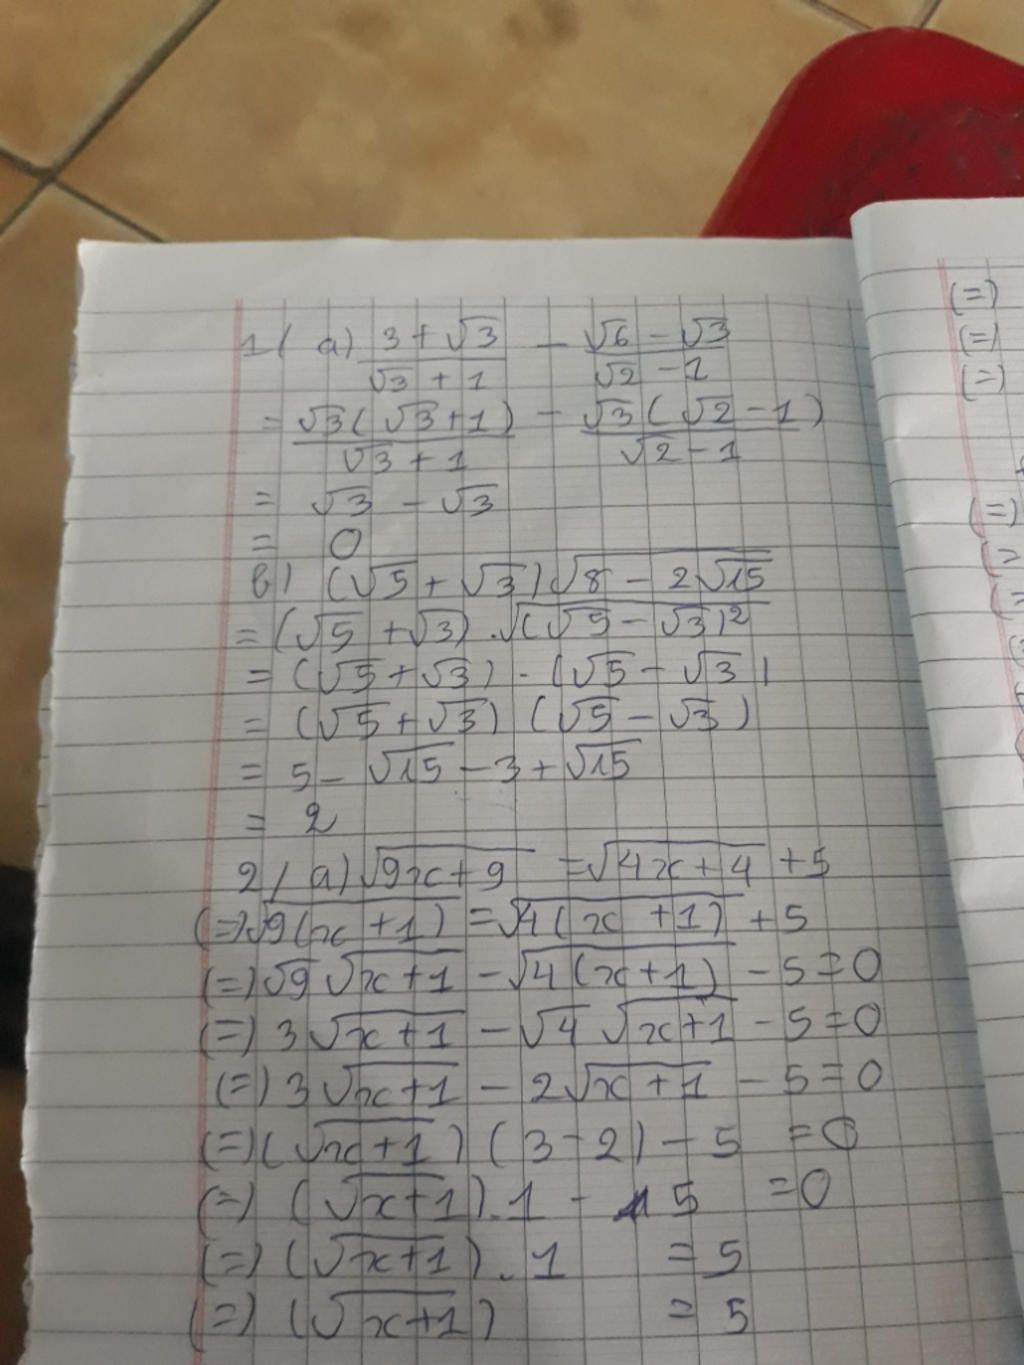 1/ a) (3 + √3)/(√3 + 1) - (√6 - √3)/(√2 - 1)
= √3(√3+1)/(√3 + 1) - √3(√2-1)/(√2-1)
= √3 - √3
= 0
b) (√5 + √3)√(8 - 2√15)
= (√5 + √3).√((√5 - √3)²)
= (√5+√3) . (√5 - √3)
= (√5+√3) (√5 - √3)
= 5 - √15 - 3 + √15
= 2
2/ a) √(9x+9) = √(4x+4) + 5
(=) √(9(x+1)) = √(4(x+1)) + 5
(=) √9 √(x+1) - √(4(x+1)) - 5 = 0
(=) 3√(x+1) - √4 √(x+1) - 5 = 0
(=) 3√(x+1) - 2√(x+1) - 5 = 0
(=) (√(x+1)) (3-2) - 5 = 0
(=) (√(x+1)).1 - 5 = 0
(=) (√(x+1)).1 = 5
(=) (√(x+1)) = 5
(=)
(=)
(=)
(=)